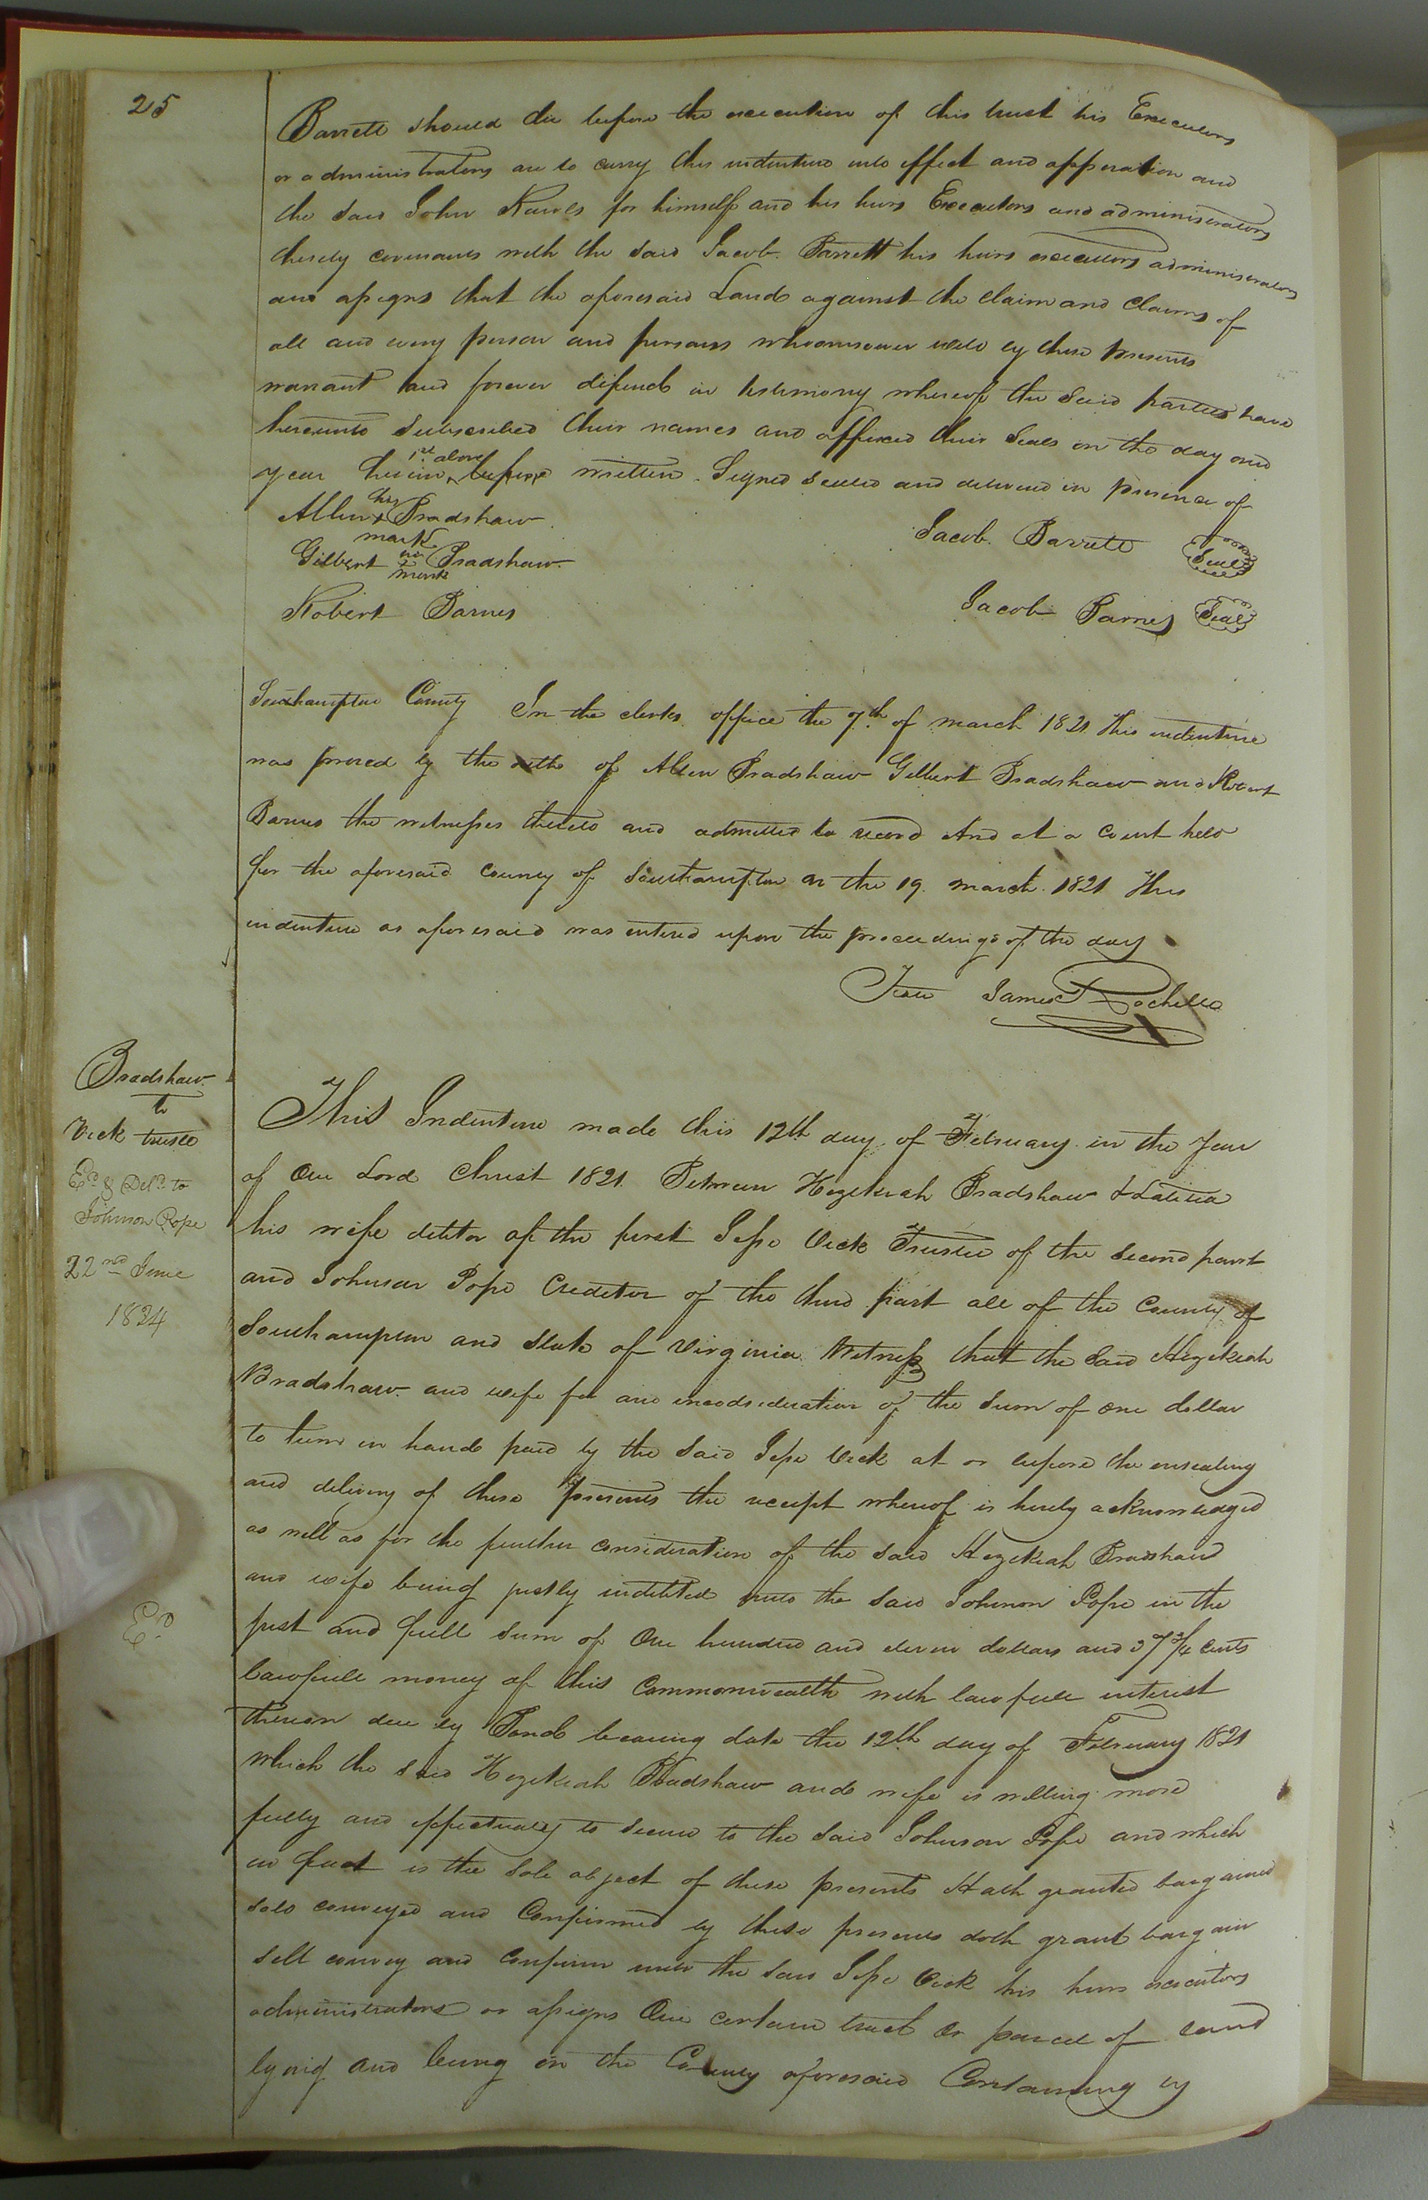 25
Barrett should die before the execution of this trust his Executors
or administrators are to carry this indenture into effect and opperation and
the said John for himself and his heirs Executors and administrators
thereby covenants with the said Jacob Barrett his heirs executors administrators
and assigns that the aforesaid Land against the claim and claims of
all and every person and persons whoomsoever will by these presents
warrant and forever difend in testimony whereof the said parties have
hereunto subscribed their names and affixed their seals on the day and
year herein 1st above before written. Signed sealed and delivered in presence of
Allen his x mark Bradshaw
Jacob Barrett Seal
Gilbert his x mark Bradshaw
Robert Barnes
Jacob Barnes Seal
Southampton County In the clerks office the 7th of march 1821 This indenture
was proved by the oaths of Allen Bradshaw Gilbert Bradshaw and Robert
Barnes the witnesses thereto and admitted to record And at a Court held
for the aforesaid County of Southampton on the 19 march 1821 This
indenture as aforesaid was entered upon the proceedings of the day
Teste James Rochelle
Bradshaw
to
Vick trustee
Ed & Deld to
Johnson Pope
22nd June
1834
This Indenture made this 12th day of February in the Year
of Our Lord Christ 1821 Between Hezekiah Bradshaw & Latitia
his wife debtor of the first Jesse Vick Trustee of the second part
and Johnson Pope Creditor of the third part all of the County of
Southampton and State of Virginia Witness that the said Hezekiah
Bradshaw and wife for and inconsideration of the sum of one dollar
to them in hand paid by the said Jesse Vick at or before the ensealing
and delivery of these presents the receipt whereof is hereby acknowledged
as well as for the further consideration of the said Hezekiah Bradshaw
and wife being justly indebted unto the said Johnson Pope in the
just and full sum of One hundred and eleven dollars and 37 3/4 cents
Ed
lawfull money of this Commonwealth with lawfull interest
thereon due by Bond bearing date the 12th day of February 1821
which the said Hezekiah Bradshaw and wife is willing more
fully and effectually to secure to the said Johnson Pope and which
in fact is the sole object of these presents Hath granted bargained
sold conveyed and Confirmed by these presents doth grant bargain
sell convey and confirm unto the said Jesse Vick his heirs executors
administrators or assigns One certain tract or parcel of land
lying and being in the County aforesaid Containing by